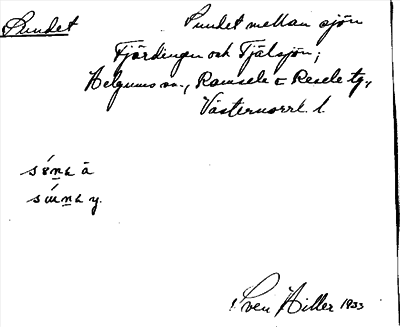 Sundet
Sundet mellan sjön
Fjärdingen och Tjälsjön;
Helgums sn., Ramsele o Resele tg,
Västernorrl. l.
ä
y.
Sven Hiller 1933